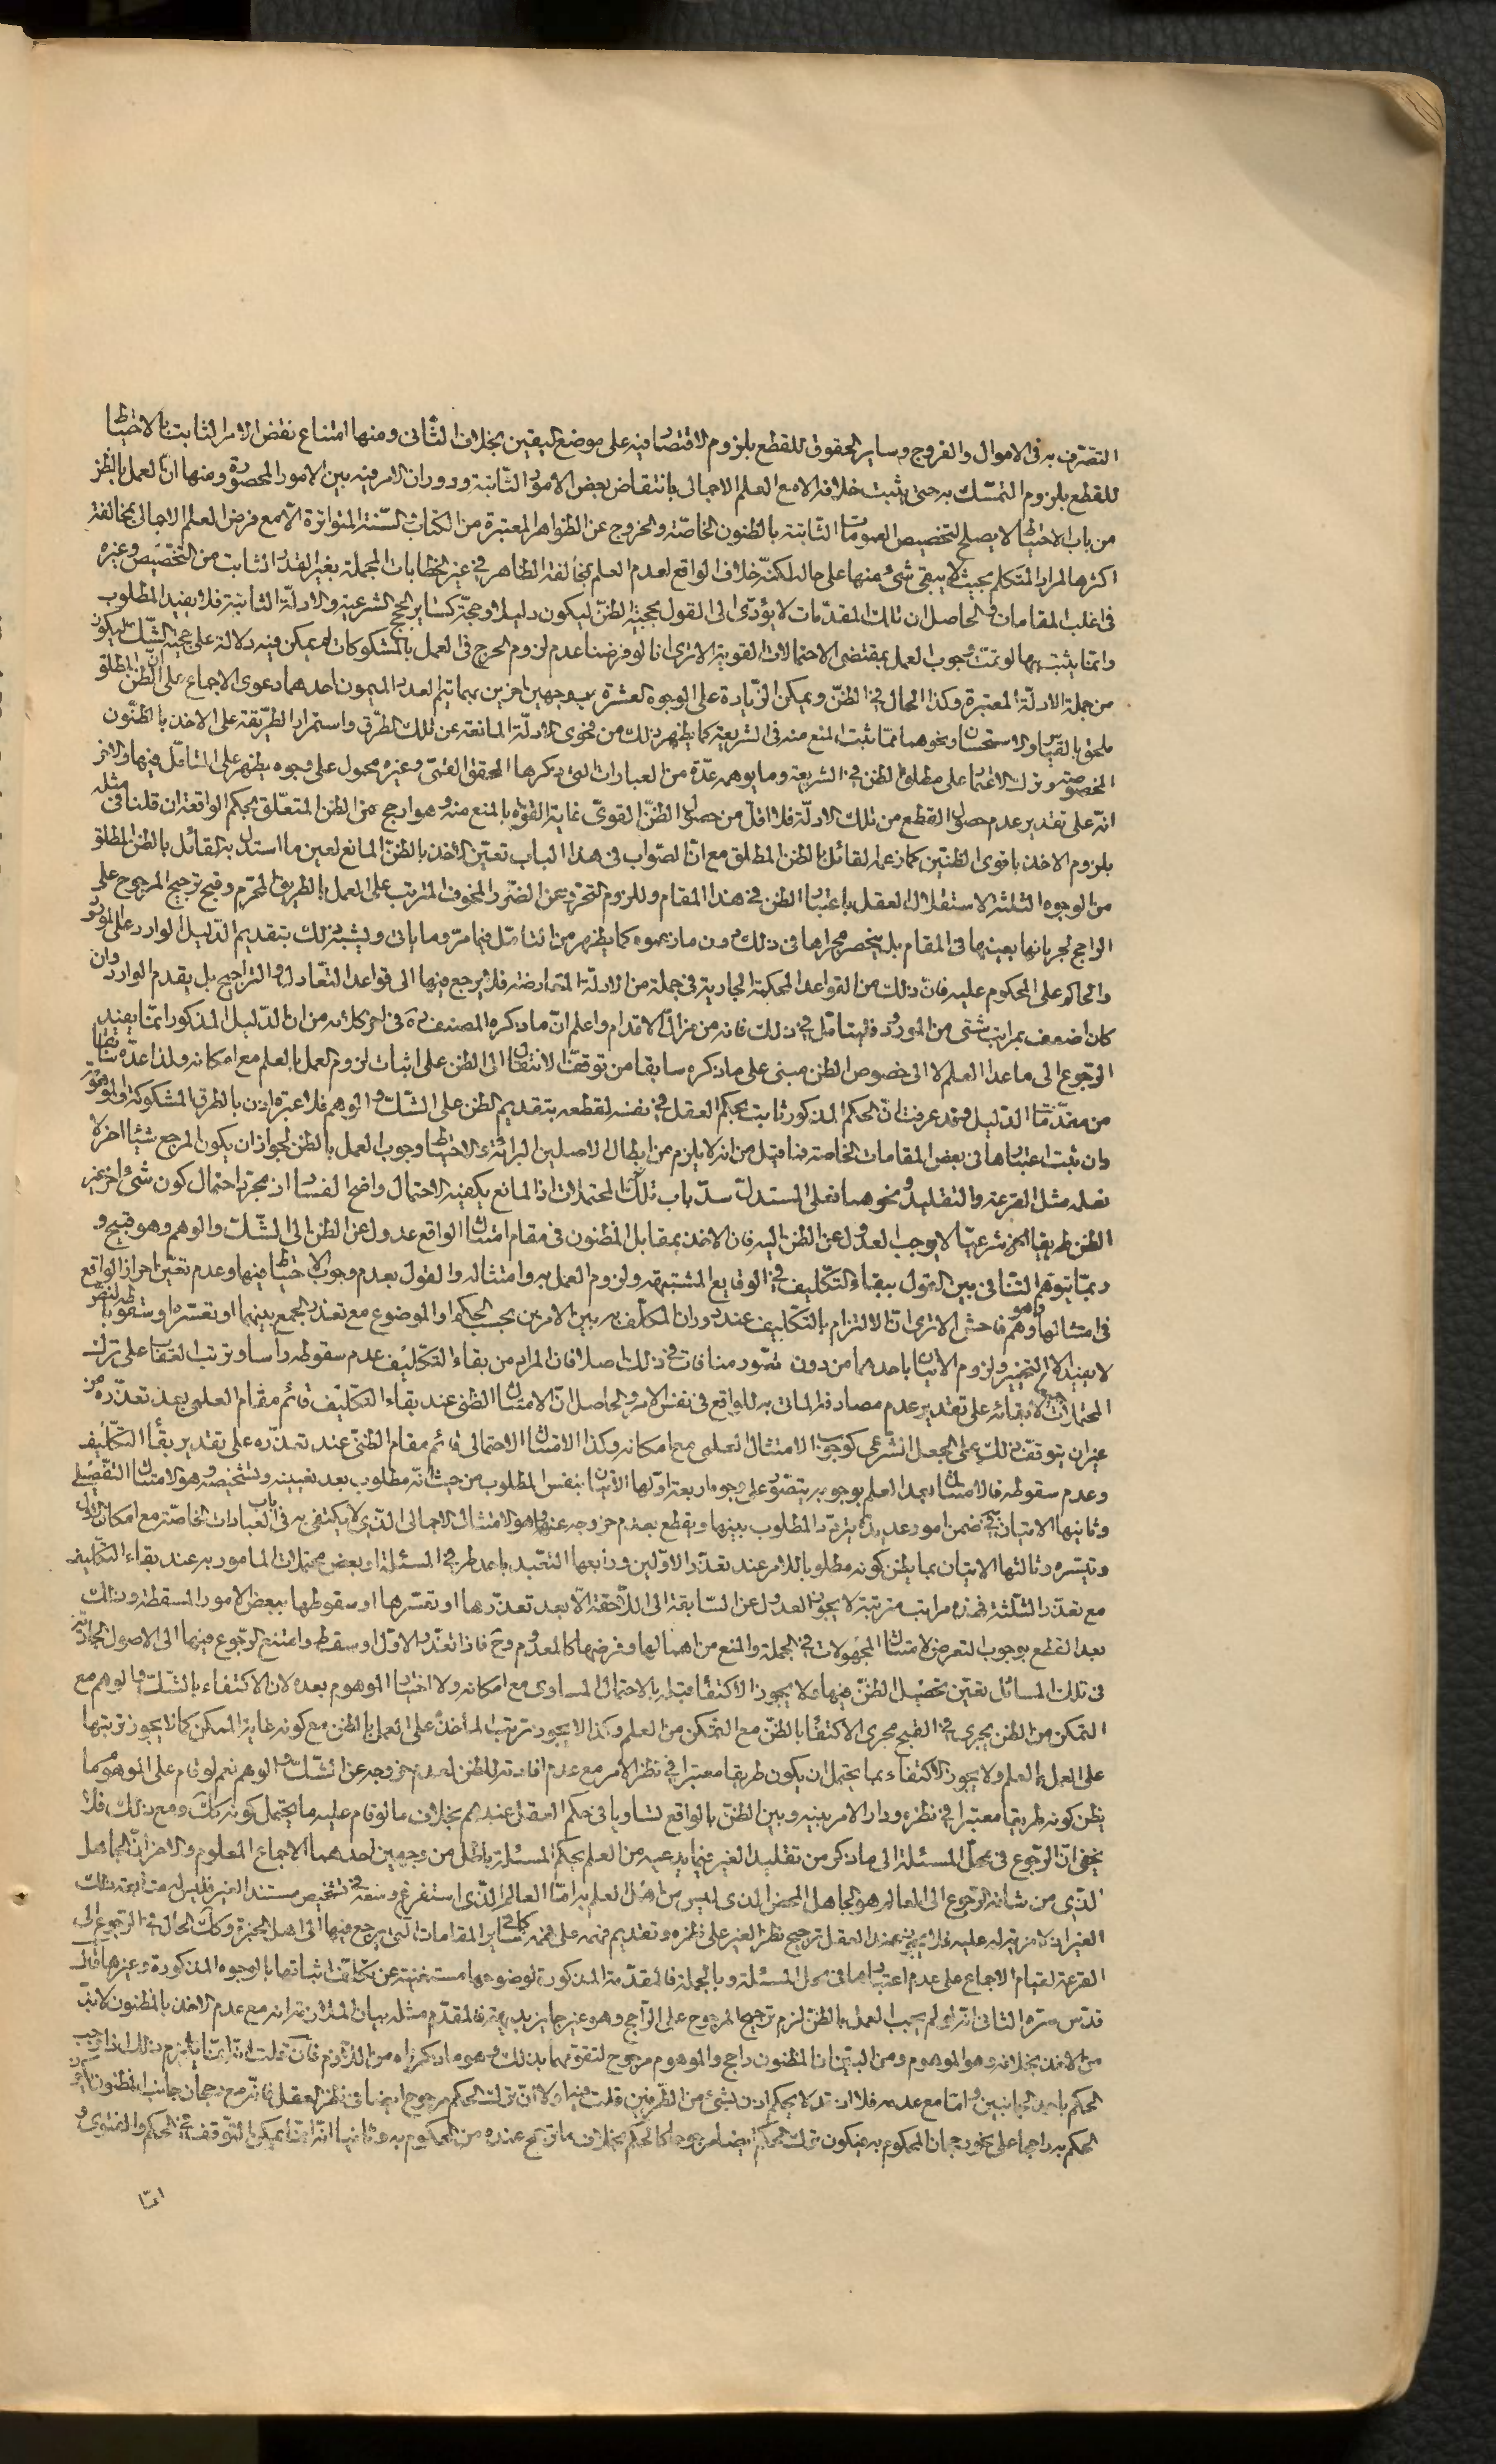 التصرف به فى الاموال والفروج وساير الحقوق للقطع بلزوم الاقتصار فيه على موضع اليقين بخلاف الثانى ومنها امتناع نقض الامر الثابت بالاحتياط
للقطع بلزوم التمسّك به حتى يثبت خلافه الا مع العلم الاجمالى بانتقاض بعض الامور الثابتة ودوران الامر فيه بين الامور المحصورة ومنها ان العمل بالظن
من باب الاحتياط لا يصلح لتخصيص العمومات الثابتة بالظنون الخاصّة والخروج عن الظواهر المعتبرة من الكتاب والسّنة المتواترة الا مع فرض العلم الاجمالى بمخالفة
اكثرها لمراد المتكلم بحيث لا يبقى شئ منها على حاله لكنّه خلاف الواقع لعدم العلم بمخالفة الظاهر فى غير الخطابات المجملة بغير القدر الثابت من التخصيص وغيره
فى اغلب المقامات والحاصل ان تلك المقدّمات لا يؤدّى الى القول بحجيّة الظنّ ليكون دليلا وحجّة كساير الحجج الشرعية والادلّة الثابتة فلا يفيد المطلوب
وانما يثبت بها لو تمّت وجوب العمل بمقتضى الاحتمالات القوية الا ترى انا لو فرضنا عدم لزوم الحرج فى العمل بالمشكوكات لم يمكن فيه دلالة على حجية الشّك ليكون
من جملة الادلّة المعتبرة وكذا الحال فى الظنّ ويمكن الزّيادة على الوجوه العشرة بوجهين اخرين بهما يتم العدد الميمون احدهما دعوى الاجماع على انّ الظن المطلق
ملحق بالقياس والاستحسان ونحوهما ممّا ثبت المنع منه فى الشريعة كما يظهر ذلك من فحوى الادلّة المانعة عن تلك الطّرق واستمرار الطّريقة على الاخذ بالظنّون
المخصوصة وترك الاعتماد على مطلق الظن فى الشريعة وما يوهمه عدّة من العبارات التى ذكرها المحقق القمّى وغيره محمول على وجوه يظهر على المتأمّل فيها والاخر
انّه على تقدير عدم حصول القطع من تلك الادلّة فلا اقلّ من حصول الظنّ القوىّ غاية القوّة بالمنع منه وهو ارجح من الظن المتعلّق بحكم الواقعة ان قلنا فى مثله
بلزوم الاخذ باقوى الظنّين كما زعمه القائل بالظن المطلق مع انّ الصّواب فى هذا الباب تعيّن الاخذ بالظنّ المانع لعين ما استدل به القائل بالظن المطلق
من الوجوه الثلثة لاستقلال العقل باعتبار الظن فى هذا المقام وللزوم التحرّز عن الضّرر المخوف المترتب على العمل بالطريق المحرّم وقبح ترجيح المرجوح على
الراجح لجريانها بعينها فى المقام بل ينحصر مجراها فى ذلك دون ما زعموه كما يظهر من التأمّل فيما مرّ وما ياتى ويشبه ذلك بتقديم الدّليل الوارد على المورود
والحاكم على المحكوم عليه فانّ ذلك من القواعد المحكمة الجارية فى جملة من الادلّة المتعارضة فلا يرجع فيها الى قواعد التعّادل والتراجيح بل يقدم الوارد وان
كان اضعف بمراتب شتى من المورود فليتأمّل فى ذلك فانه من مزالّ الاقدام واعلم انّ ما ذكره المصنف ره فى اخر كلامه من انّ الدّليل المذكور انّما يفيد
الرّجوع الى ما عدا العلم لا الى خصوص الظن مبنى على ما ذكره سابقا من توقف الانتقال الى الظن على اثبات لزوم العمل بالعلم مع امكانه ولذا عدّه سابقا
من مقدّمات الدّليل وقد عرفت انّ الحكم المذكور ثابت بحكم العقل فى نفسه لقطعه بتقديم الظن على الشّك والوهم فلا عبرة اذن بالطرق المشكوكة والموهومة
وان ثبت اعتبارها فى بعض المقامات الخاصة فما قيل من انه لا يلزم من ابطال الاصلين البرائة والاحتياط وجوب العمل بالظن لجواز ان يكون المرجع شيئا اخر لا
نعلمه مثل القرعة والتقليد ونحوهما فعلى المستدلّ سدّ باب تلك المحتملات اذ المانع يكفيه الاحتمال واضح الفساد اذ مجرّد احتمال كون شئ اخر غير
الظن طريقا اخر شرعيّا لا يوجب العدول عن الظن اليه فان الاخذ بمقابل المظنون فى مقام امتثال الواقع عدول عن الظن الى الشّك والوهم وهو قبيح و
ربمّا يتوهّم التنّافى بين القول ببقاء التكّليف فى الوقايع المشتبهة ولزوم العمل به وامتثاله والقول بعدم وجوب الاحتياط فيها وعدم تعيّن احراز الواقع
فى امتثالها وهو وهم فاحش الا ترى انّ الالتزام بالتكّليف عند دوران المكلّف به بين الامرين بحسب الحكم او الموضوع مع تعذّر الجمع بينهما او تعسّره او سقوطه بالنصّ
لا يفيد الا التخيير ولزوم الاتيان باحدهما من دون تصوّر منافات فى ذلك اصلا فان المراد من بقاء التكّليف عدم سقوطه رأسا وترتب العقاب على ترك
المحتملات لا بقائه على تقدير عدم مصادفة الماتى به للواقع فى نفس الامر والحاصل انّ الامتثال الظنى عند بقاء التكّليف قائم مقام العلمى بعد تعذّره من
غير ان يتوقّف ذلك على الجعل الشرّعى كوجوب الامتثال العلمى مع امكانه وكذا الامتثال الاحتمالى قائم مقام الظنّى عند تعذّره على تقدير بقاء التكّليف
وعدم سقوطه فالامتثال بعد العلم بوجوبه يتصّور على وجوه اربعة اوّلها الاتيان بنفس المطلوب من حيث انّه مطلوب بعد تعيينه وتشخيصه وهو الامتثال التفّصيلى
وثانيها الاتيان فى ضمن امور عديدة يتردّد المطلوب بينها ويقطع بعدم خروجه عنها وهو الامتثال الاجمالى الذّى لا يكتفى به فى باب العبادات الخاصّة مع امكان الاوّل
وتيسّره وثالثها الاتيان بما يظن كونه مطلوبا للامر عند تعذّر الاوّلين ورابعها التعّبد باحد طرفى المسئلة او بعض محتملات المامور به عند بقاء التكّليف
مع تعذّر الثلثة فهذه مراتب مترتبة لا يجوز العدول عن السّابقة الى اللاّحقة الاّ بعد تعذّرها او تعسّرها او سقوطها ببعض الامور المسقطة وذلك
بعد القطع بوجوب التعرض لامتثال المجهولات فى الجملة والمنع من اهمالها وفرضها كالمعدوم وح فاذا تعذّر الاوّل او سقط وامتنع الرّجوع فيها الى الاصول الجارية
فى تلك المسائل تعيّن تحصيل الظنّ فيها ولا يجوز الاكتفاء بالاحتمال المساوى مع امكانه ولا اختيار الموهوم بعده لان الاكتفاء بالشّك والوهم مع
التمكن من الظن يجرى فى القبح مجرى الاكتفاء بالظنّ مع التمّكن من العلم وكذا لا يجوز ترتب المأخذ على العمل بالظن مع كونه غاية الممكن كما لا يجوز ترتبها
على العمل بالعلم ولا يجوز الاكتفاء بما يحتمل ان يكون طريقا معتبرا فى نظر الامر مع عدم افادته للظن لعدم خروجه عن الشّك والوهم نعم لو قام على الموهوم ما
يظن كونه طريقا معتبرا فى نظره ودار الامر بينه وبين الظنّ بالواقع تساويا فى حكم العقل عندهم بخلاف ما لو قام عليه ما يحتمل كونه كك ومع ذلك فلا
يخفى انّ الرّجوع فى محلّ المسئلة الى ما ذكر من تقليد الغير فيما يدعيه من العلم بحكم المسئلة باطل من وجهين احدهما الاجماع المعلوم والاخر انّ الجاهل
الذّى من شانه الرّجوع الى العالم هو الجاهل المحض الذى ليس من اهل العلم به امّا العالم الذّى استفرغ وسعه فى تشخيص مستند الغير فليس له متابعة ذلك
الغير اذ لا مزية له عليه فلا يجوز عند العقل ترجيح نظر الغير على نظره وتقديم فهمه على فهمه كما فى ساير المقامات التى يرجع فيها الى اهل الخبرة وكك الحال فى الرّجوع الى
القرعة لقيام الاجماع على عدم اعتبارها فى محل المسئلة وبالجملة فالمقدّمة المذكورة لوضوحها مستغنية عن تكلّف اثباتها بالوجوه المذكورة وغيرها قال
قدّس سرّه الثانى انّه لو لم يجب العمل بالظنّ لزم ترجيح المرجوح على الرّاجح وهو غير جايز بديهة فالمقدّم مثله بيان الملازمة انه مع عدم الاخذ بالمظنون لا بدّ
من الاخذ بخلافه وهو الموهوم ومن البيّن ان المظنون راجح والموهوم مرجوح لتقومهما بذلك وهو ما ذكرناه من اللّزوم فان قلت انّما يلزم ذلك اذا وجب
الحكم باحد الجانبين وامّا مع عدمه فلا اذ قد لا يحكم اذن بشئ من الطّرفين قلت فيه اولا انّ ترك الحكم مرجوح ايضا فى نظر العقل فانّه مع رجحان جانب المظنون
الحكم به راجحا على نحو رجحان المحكوم به فيكون ترك الحكم ايضا مرجوحا كالحكم بخلاف ما ترجّح عنده من المحكوم به وثانيا انّه انّما يمكن التّوقف فى الحكم والفتوى و
امّا